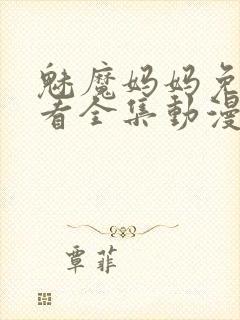 魅魔妈妈免
看全集動漫
覃菲